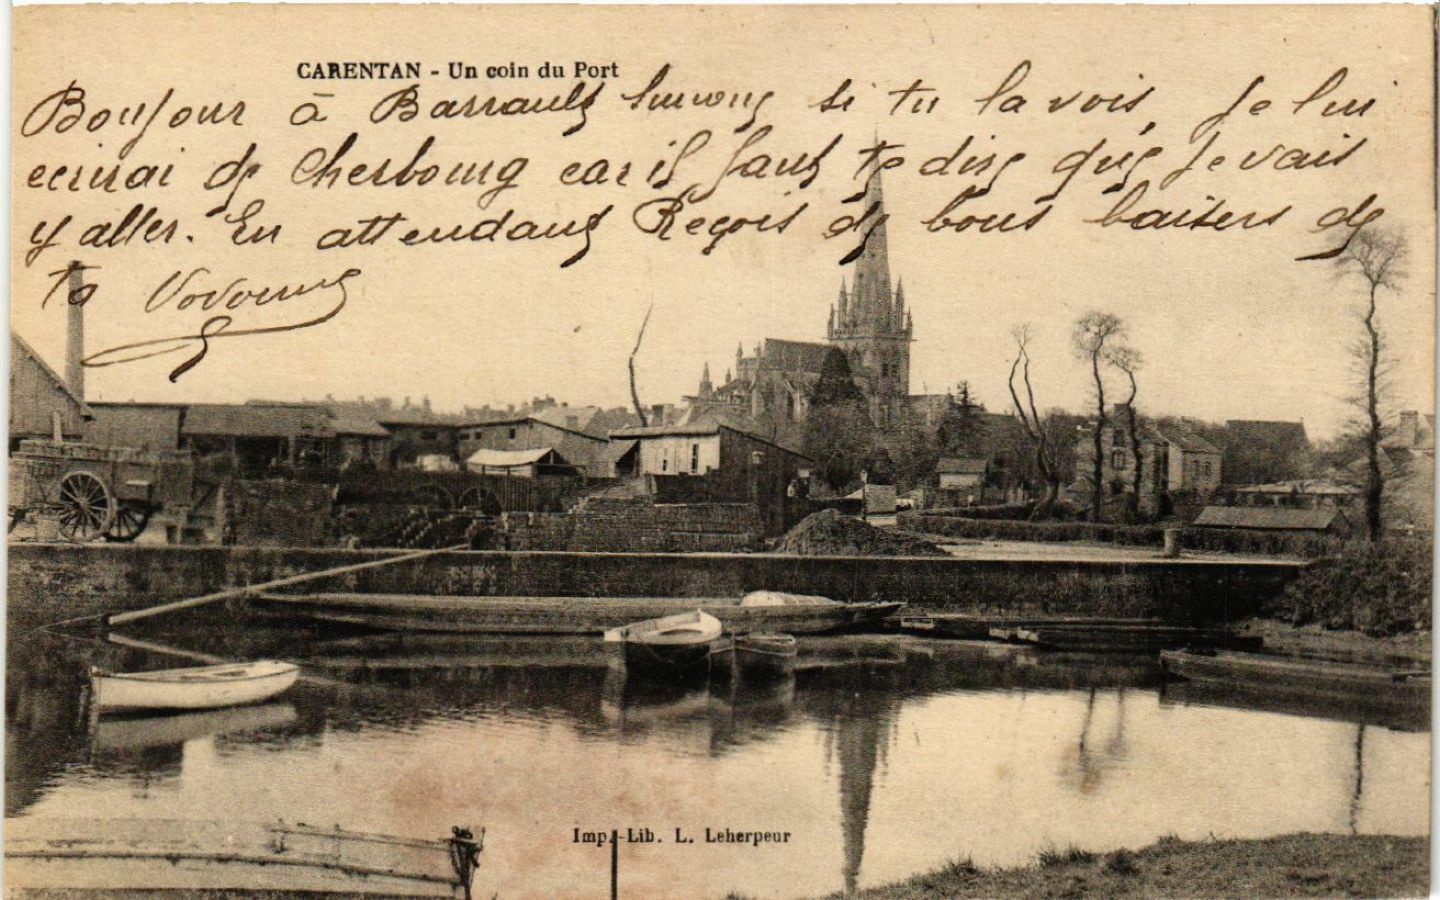 CARENTAN - Un coin du Port
Bonjour à Barrault si tu la vois, Je lui
ecrirai de Cherbourg car il faut te dire que Je vais
y aller. En attendant Reçois de bons baisers de
ta
Imp.-Lib. L. Leherpeur